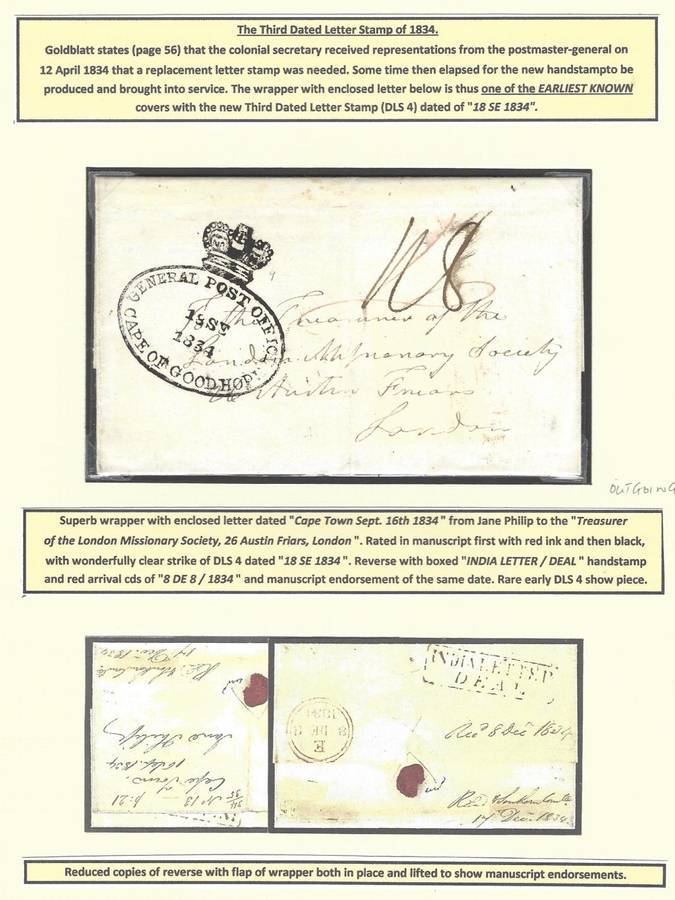 The Third Dated Letter Stamp of 1834.
Goldblatt states (page 56) that the colonial secretary received representations from the postmaster-general on
12 April 1834 that a replacement letter stamp was needed. Some time then elapsed for the new handstampto be
produced and brought into service. The wrapper with enclosed letter below is thus one of the EARLIEST KNOWN
covers with the new Third Dated Letter Stamp (DLS 4) dated of "18 SE 1834".
GENERAL POST OFFICE
18 SE
1834
CAPE OF GOOD HOPE
118
To the Treasurer of the
London Missionary Society
26 Austin Friars
London
OUTGOING
Superb wrapper with enclosed letter dated "Cape Town Sept. 16th 1834" from Jane Philip to the "Treasurer
of the London Missionary Society, 26 Austin Friars, London". Rated in manuscript first with red ink and then black,
with wonderfully clear strike of DLS 4 dated "18 SE 1834". Reverse with boxed "INDIA LETTER / DEAL" handstamp
and red arrival cds of "8 DE 8 / 1834" and manuscript endorsement of the same date. Rare early DLS 4 show piece.
17 Dec. 1834
Jane Philip
16 Sep. 1834
Cape Town
34/35 No 13 - p. 21
INDIA LETTER
DEAL
E
8 DE 8
1834
Rec 8 Dec 1834
17 Dec. 1834
Reduced copies of reverse with flap of wrapper both in place and lifted to show manuscript endorsements.